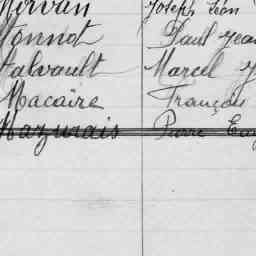 Morvan Joseph Léon
Monnot Paul Jean
Malvault Marcel J
Macaire François
Mazurais Pierre Eug